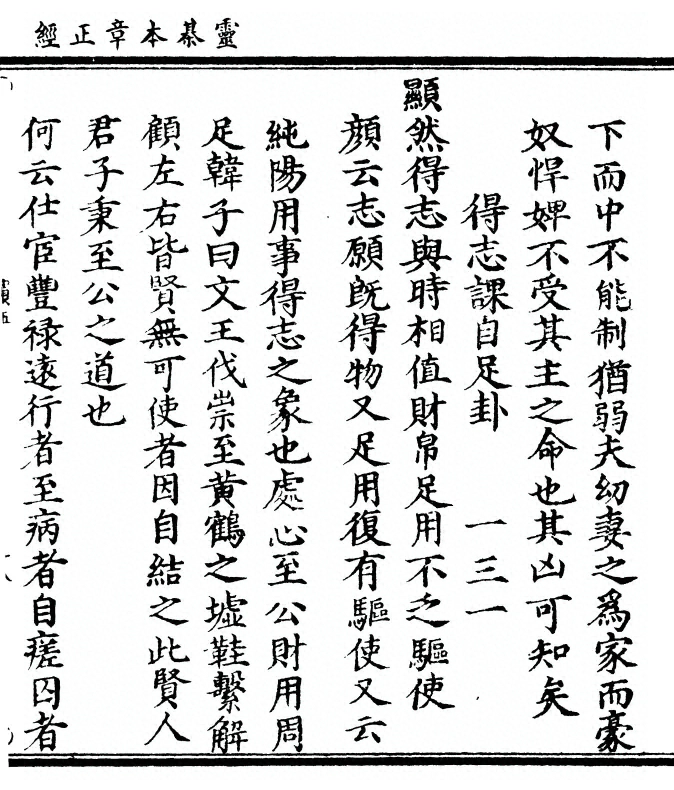 靈棊本章正經
下而中不能制猶弱夫幼妻之為家而豪
奴悍婢不受其主之命也其凶可知矣
得志課自足卦 一三一
顯然得志與時相值財帛足用不乏驅使
顔云志願旣得物又足用復有驅使又云
純陽用事得志之象也處心至公財用周
足韓子曰文王伐崇至黃鶴之墟鞋繫解
顧左右皆賢無可使者因自結之此賢人
君子秉至公之道也
何云仕宦豐禄遠行者至病者自瘥囚者